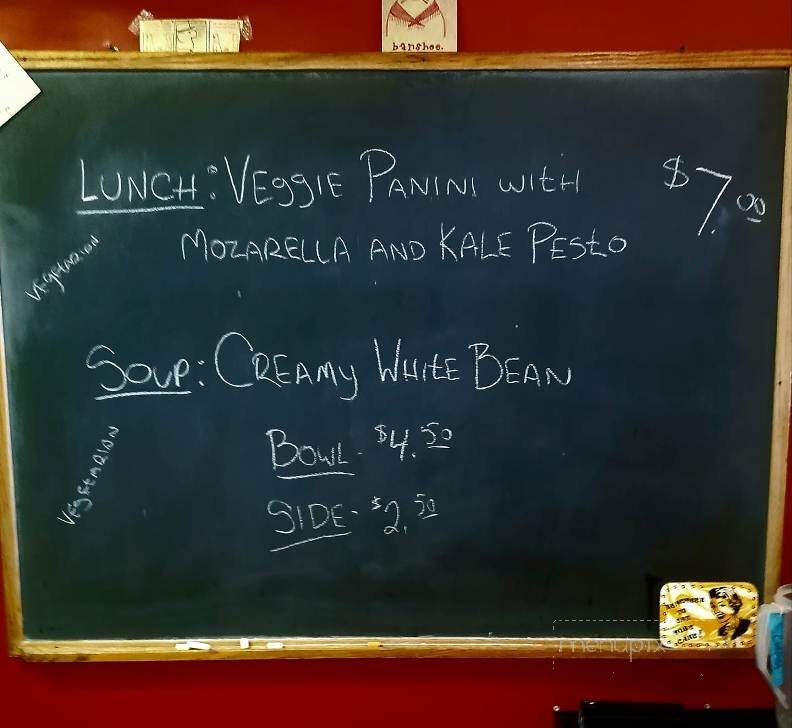 banshee.
LUNCH: VEggIE PANINI WITH $7.00
MOZARELLA AND KALE PEStO
VEgEtARION
SOUP: CREAMy WHItE BEAN
BOWL - $4.50
VEgEtARION
SIDE - $2.50
menupix